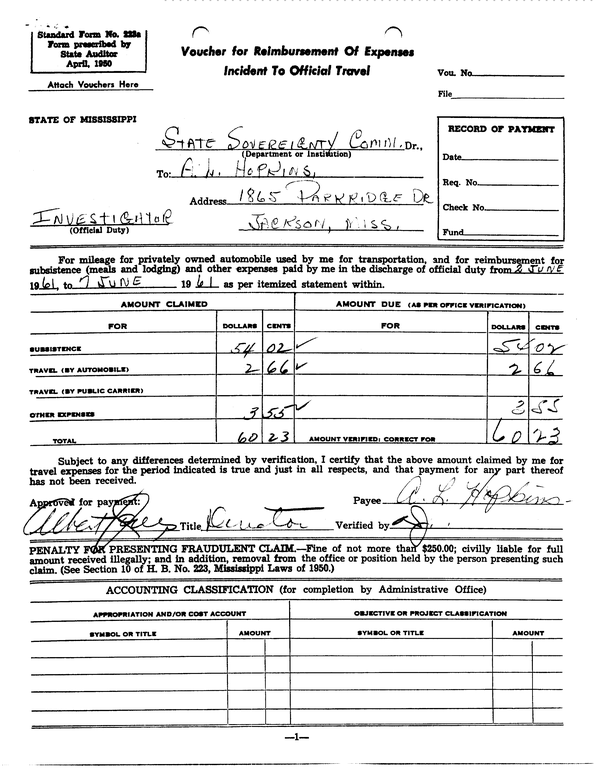 Standard Form No. 223a
Form prescribed by
State Auditor
April, 1950
Attach Vouchers Here
Voucher for Reimbursement Of Expenses
Incident To Official Travel
Vou. No.
File
STATE OF MISSISSIPPI
STATE SOVEREIGNTY COMM. Dr.,
(Department or Institution)
To: A. L. HOPKINS,
Address 1865 PARKRIDGE DR
INVESTIGATOR JACKSON, MISS.
(Official Duty)
RECORD OF PAYMENT
Date
Req. No.
Check No.
Fund
For mileage for privately owned automobile used by me for transportation, and for reimbursement for
subsistence (meals and lodging) and other expenses paid by me in the discharge of official duty from 2 JUNE
1961, to 7 JUNE 1961 as per itemized statement within.
AMOUNT CLAIMED AMOUNT DUE (AS PER OFFICE VERIFICATION)
FOR DOLLARS CENTS FOR DOLLARS CENTS
SUBSISTENCE 54 02 ✓ 54 02
TRAVEL (BY AUTOMOBILE) 2 66 ✓ 2 66
TRAVEL (BY PUBLIC CARRIER)
OTHER EXPENSES 3 55 ✓ 3 55
TOTAL 60 23 AMOUNT VERIFIED: CORRECT FOR 60 23
Subject to any differences determined by verification, I certify that the above amount claimed by me for
travel expenses for the period indicated is true and just in all respects, and that payment for any part thereof
has not been received.
Approved for payment: Payee A. L. Hopkins
Albert Jones Title Director Verified by
PENALTY FOR PRESENTING FRAUDULENT CLAIM.—Fine of not more than $250.00; civilly liable for full
amount received illegally; and in addition, removal from the office or position held by the person presenting such
claim. (See Section 10 of H. B. No. 223, Mississippi Laws of 1950.)
ACCOUNTING CLASSIFICATION (for completion by Administrative Office)
APPROPRIATION AND/OR COST ACCOUNT OBJECTIVE OR PROJECT CLASSIFICATION
SYMBOL OR TITLE AMOUNT SYMBOL OR TITLE AMOUNT
—1—